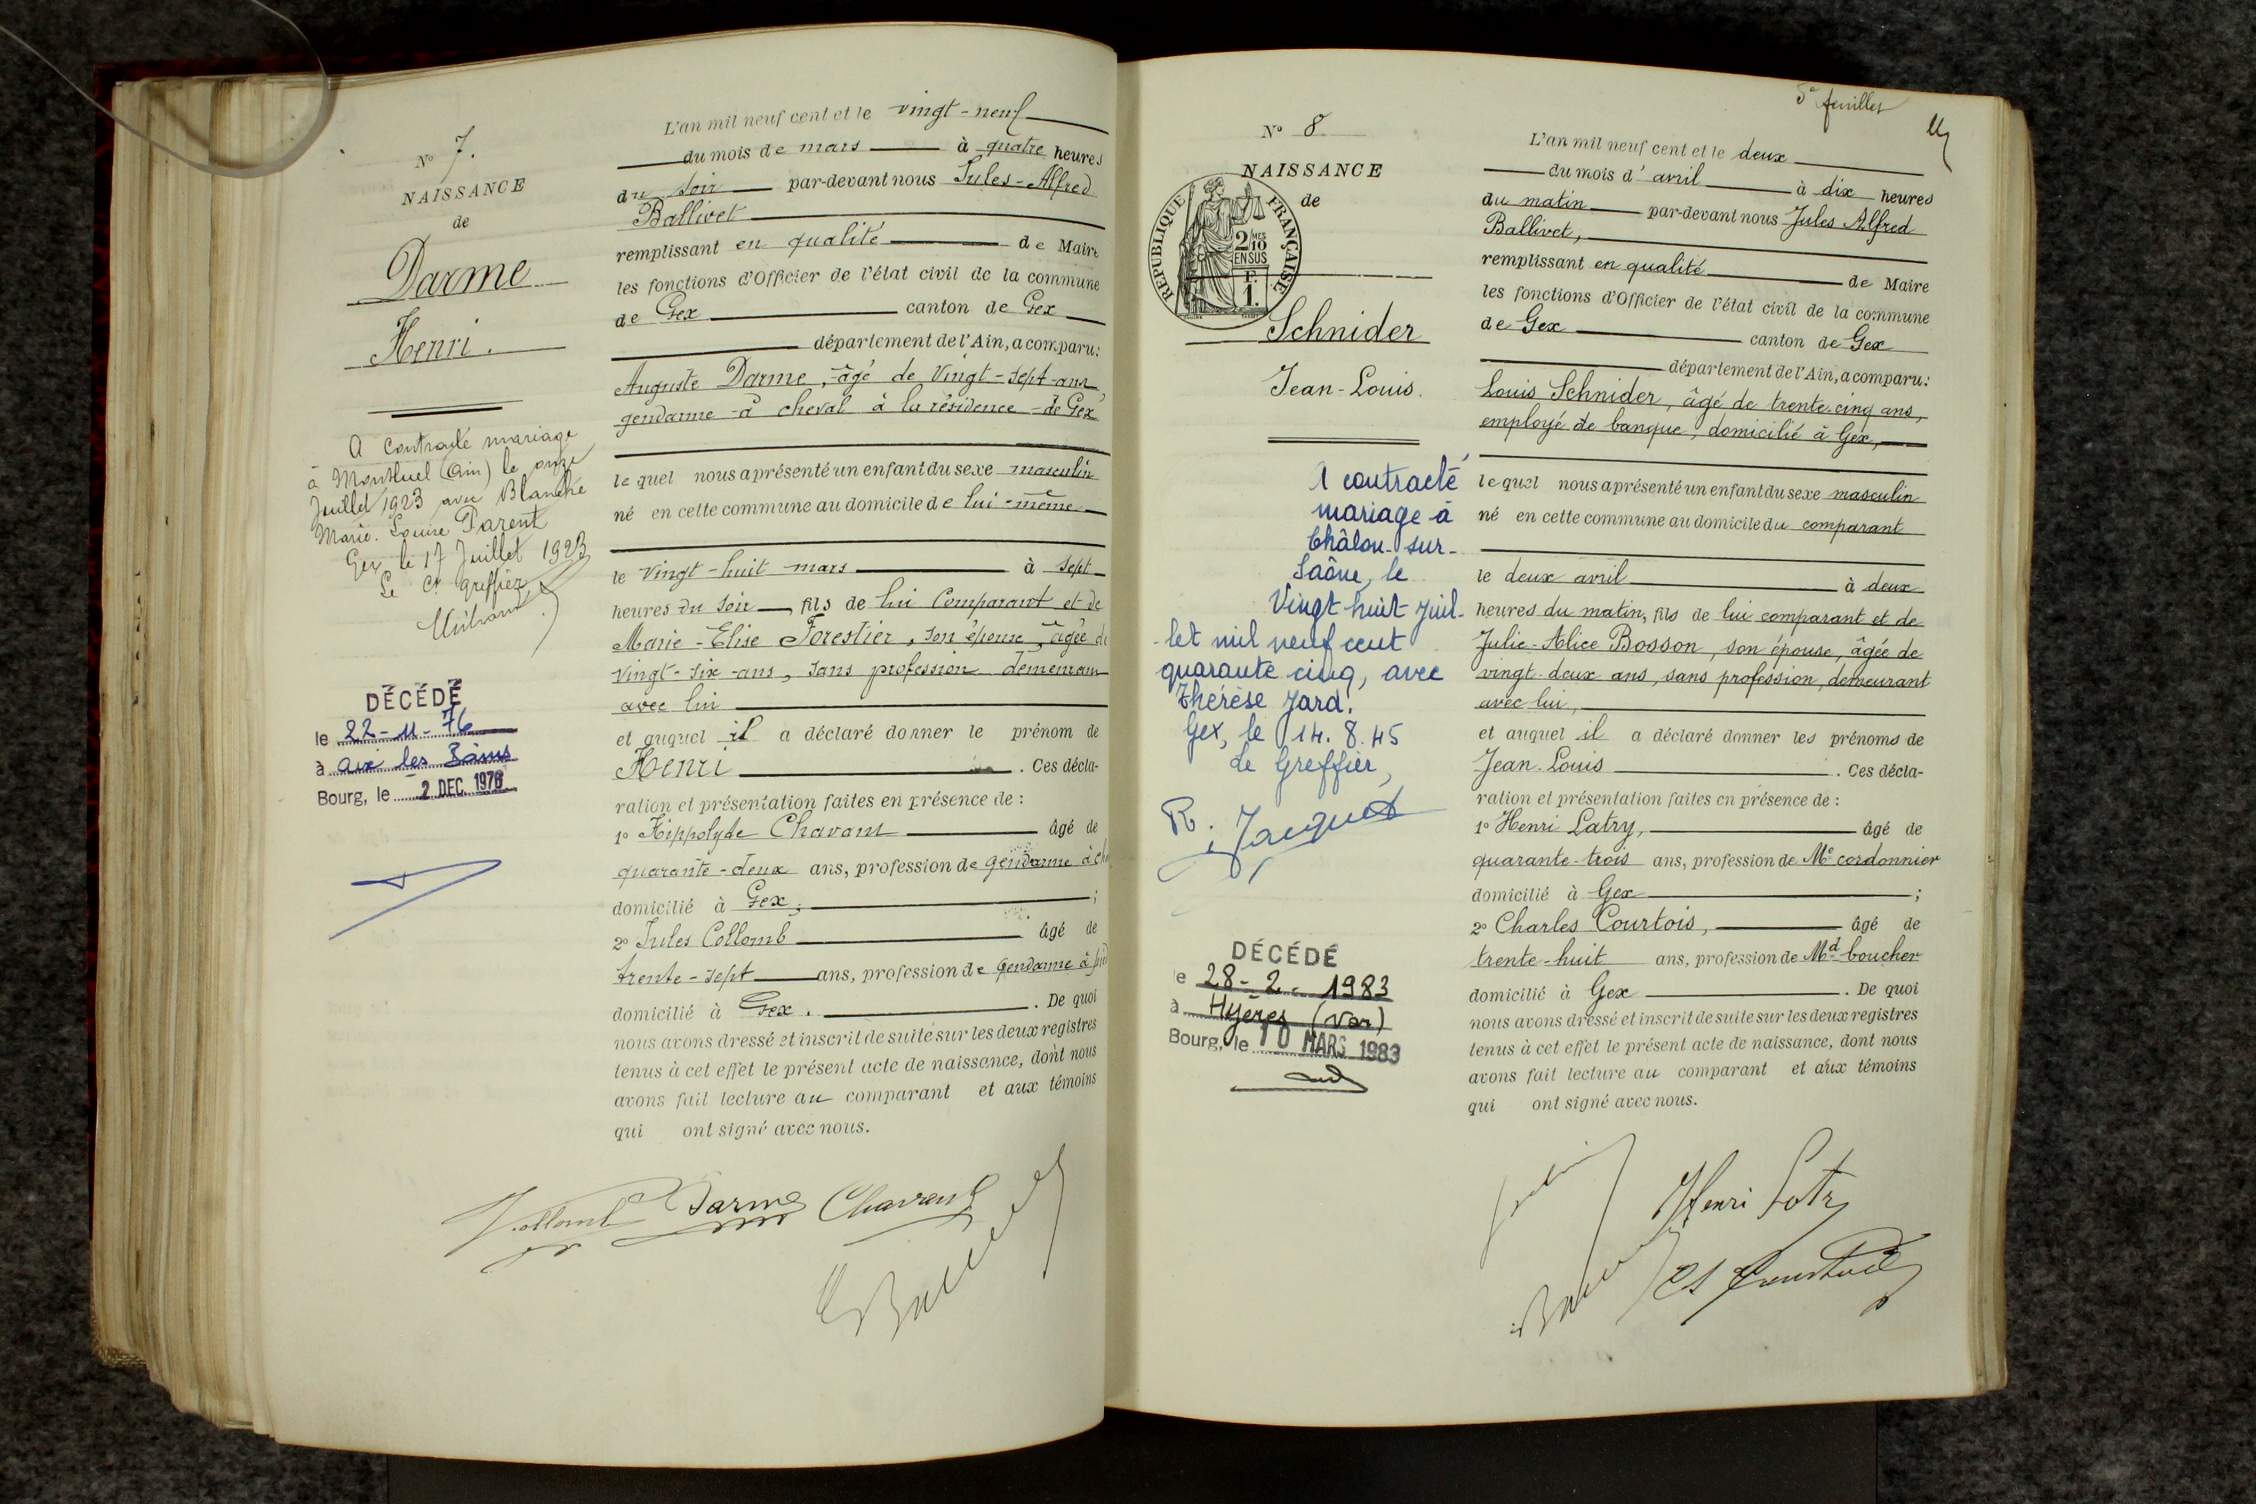 N° 7.
NAISSANCE
de
Darme
Henri.
A contracté mariage
à Montluel (Ain) le onze
Juillet 1923 avec Blanche
Marie-Louise Parent
Gex le 17 Juillet 1923
Le Cs Greffier
DÉCÉDÉ
le 22-11-76
à aix les Bains
Bourg, le 2 DEC. 1976
L'an mil neuf cent et le vingt-neuf
du mois de mars à quatre heures
du soir par-devant nous Jules-Alfred
Ballivet
remplissant en qualité de Maire
les fonctions d'Officier de l'état civil de la commune
de Gex canton de Gex
département de l'Ain, a comparu:
Auguste Darme, âgé de Vingt-sept-ans,
gendarme à cheval à la résidence de Gex
lequel nous a présenté un enfant du sexe masculin
né en cette commune au domicile de lui-même
le Vingt-huit mars à sept
heures du soir, fils de lui Comparant et de
Marie-Elise Forestier, son épouse, âgée de
vingt-six-ans, sans profession demeurant
avec lui
et auquel il a déclaré donner le prénom de
Henri. Ces décla-
ration et présentation faites en présence de:
1° Hippolyte Chavant âgé de
quarante-deux ans, profession de gendarme à ch
domicilié à Gex;
2° Jules Collomb âgé de
trente-sept ans, profession de gendarme à pied
domicilié à Gex. De quoi
nous avons dressé et inscrit de suite sur les deux registres
tenus à cet effet le présent acte de naissance, dont nous
avons fait lecture au comparant et aux témoins
qui ont signé avec nous.
J. Collomb Darme Chavant
Ballivet
5e feuillet
N° 8
NAISSANCE
de
RÉPUBLIQUE FRANÇAISE
2 MES 10
EN SUS
F.
1.
Schnider
Jean-Louis.
A contracté
mariage à
Châlon-sur-
Saône, le
Vingt huit juil-
-let mil neuf cent
quarante cinq, avec
Thérèse Jard.
Gex, le 14.8.45
Le Greffier,
R. Jacquet
DÉCÉDÉ
le 28-2-1983
à Hyères (Var)
Bourg, le 10 MARS 1983
L'an mil neuf cent et le deux
du mois d'avril à dix heures
du matin par-devant nous Jules Alfred
Ballivet,
remplissant en qualité de Maire
les fonctions d'Officier de l'état civil de la commune
de Gex canton de Gex
département de l'Ain, a comparu:
Louis Schnider, âgé de trente-cinq ans,
employé de banque, domicilié à Gex,
lequel nous a présenté un enfant du sexe masculin
né en cette commune au domicile du comparant
le deux avril à deux
heures du matin, fils de lui comparant et de
Julie-Alice Bosson, son épouse, âgée de
vingt-deux ans, sans profession, demeurant
avec lui,
et auquel il a déclaré donner les prénoms de
Jean-Louis. Ces décla-
ration et présentation faites en présence de:
1° Henri Latry, âgé de
quarante-trois ans, profession de Me cordonnier
domicilié à Gex;
2° Charles Courtois, âgé de
trente-huit ans, profession de Md boucher
domicilié à Gex. De quoi
nous avons dressé et inscrit de suite sur les deux registres
tenus à cet effet le présent acte de naissance, dont nous
avons fait lecture au comparant et aux témoins
qui ont signé avec nous.
Henri Latry
Ballivet Ch Courtois